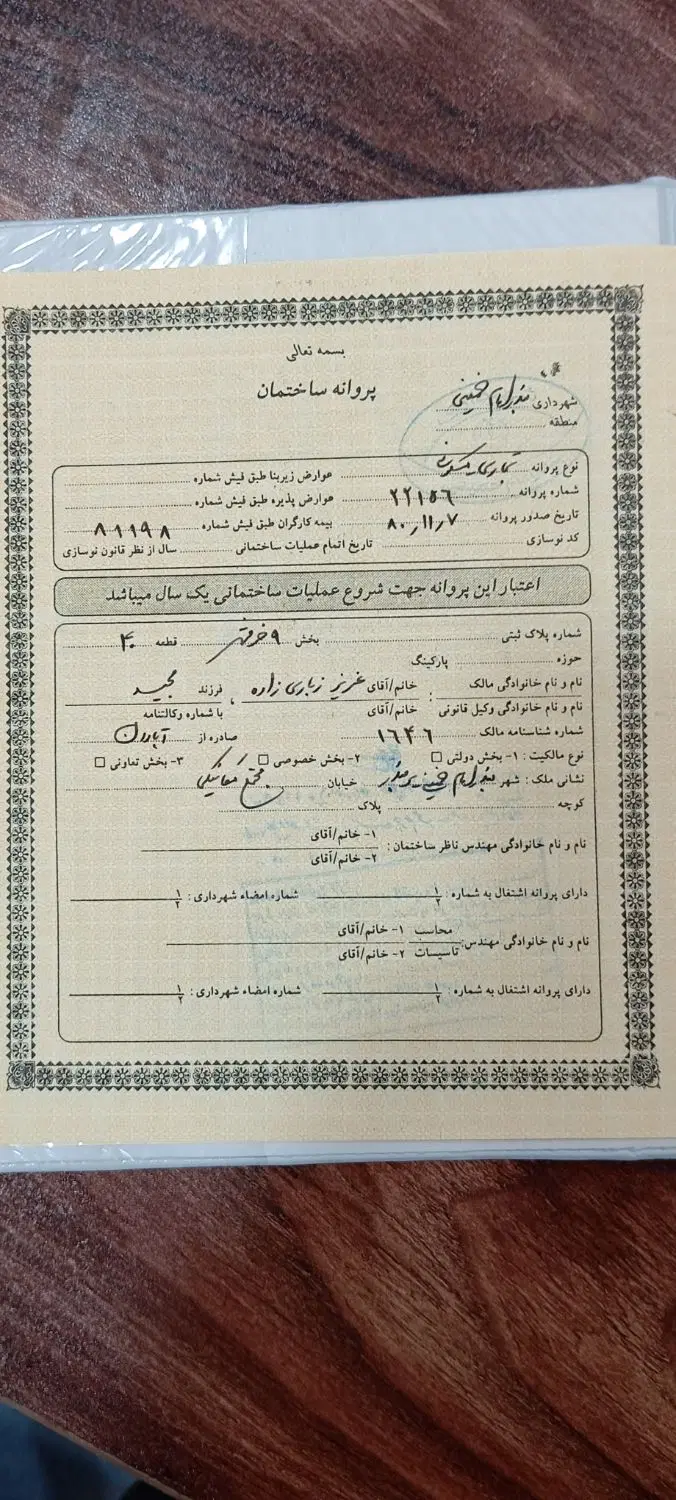 بسمه تعالی
پروانه ساختمان
شهرداری بندر امام خمینی
منطقه
نوع پروانه عوارض زیربنا طبق فیش شماره
شماره پروانه ۲۲۱۵۶ عوارض پذیره طبق فیش شماره
تاریخ صدور پروانه ۸۰٫۱۱٫۷ بیمه کارگران طبق فیش شماره ۸۹۱۹۸
کد نوسازی تاریخ اتمام عملیات ساختمانی سال از نظر قانون نوسازی
اعتبار این پروانه جهت شروع عملیات ساختمانی یک سال میباشد
شماره پلاک ثبتی بخش ۹ قطعه ۴۰
حوزه پارکینگ
نام و نام خانوادگی مالک : خانم/آقای عزیز زیاری زاده ، فرزند مجید
نام و نام خانوادگی وکیل قانونی خانم/آقای با شماره وکالتنامه
شماره شناسنامه مالک ۱۶۴۶ صادره از آبادان
نوع مالکیت : ۱- بخش دولتی □ ۲- بخش خصوصی □ ۳- بخش تعاونی □
نشانی ملک : شهر بندر امام خمینی خیابان مجتمع مکانیکی
کوچه پلاک
نام و نام خانوادگی مهندس ناظر ساختمان : ۱- خانم/آقای
۲- خانم/آقای
دارای پروانه اشتغال به شماره : ۱ شماره امضاء شهرداری : ۱
۲ ۲
نام و نام خانوادگی مهندس: محاسب ۱- خانم/آقای
تاسیسات ۲- خانم/آقای
دارای پروانه اشتغال به شماره : ۱ شماره امضاء شهرداری : ۱
۲ ۲